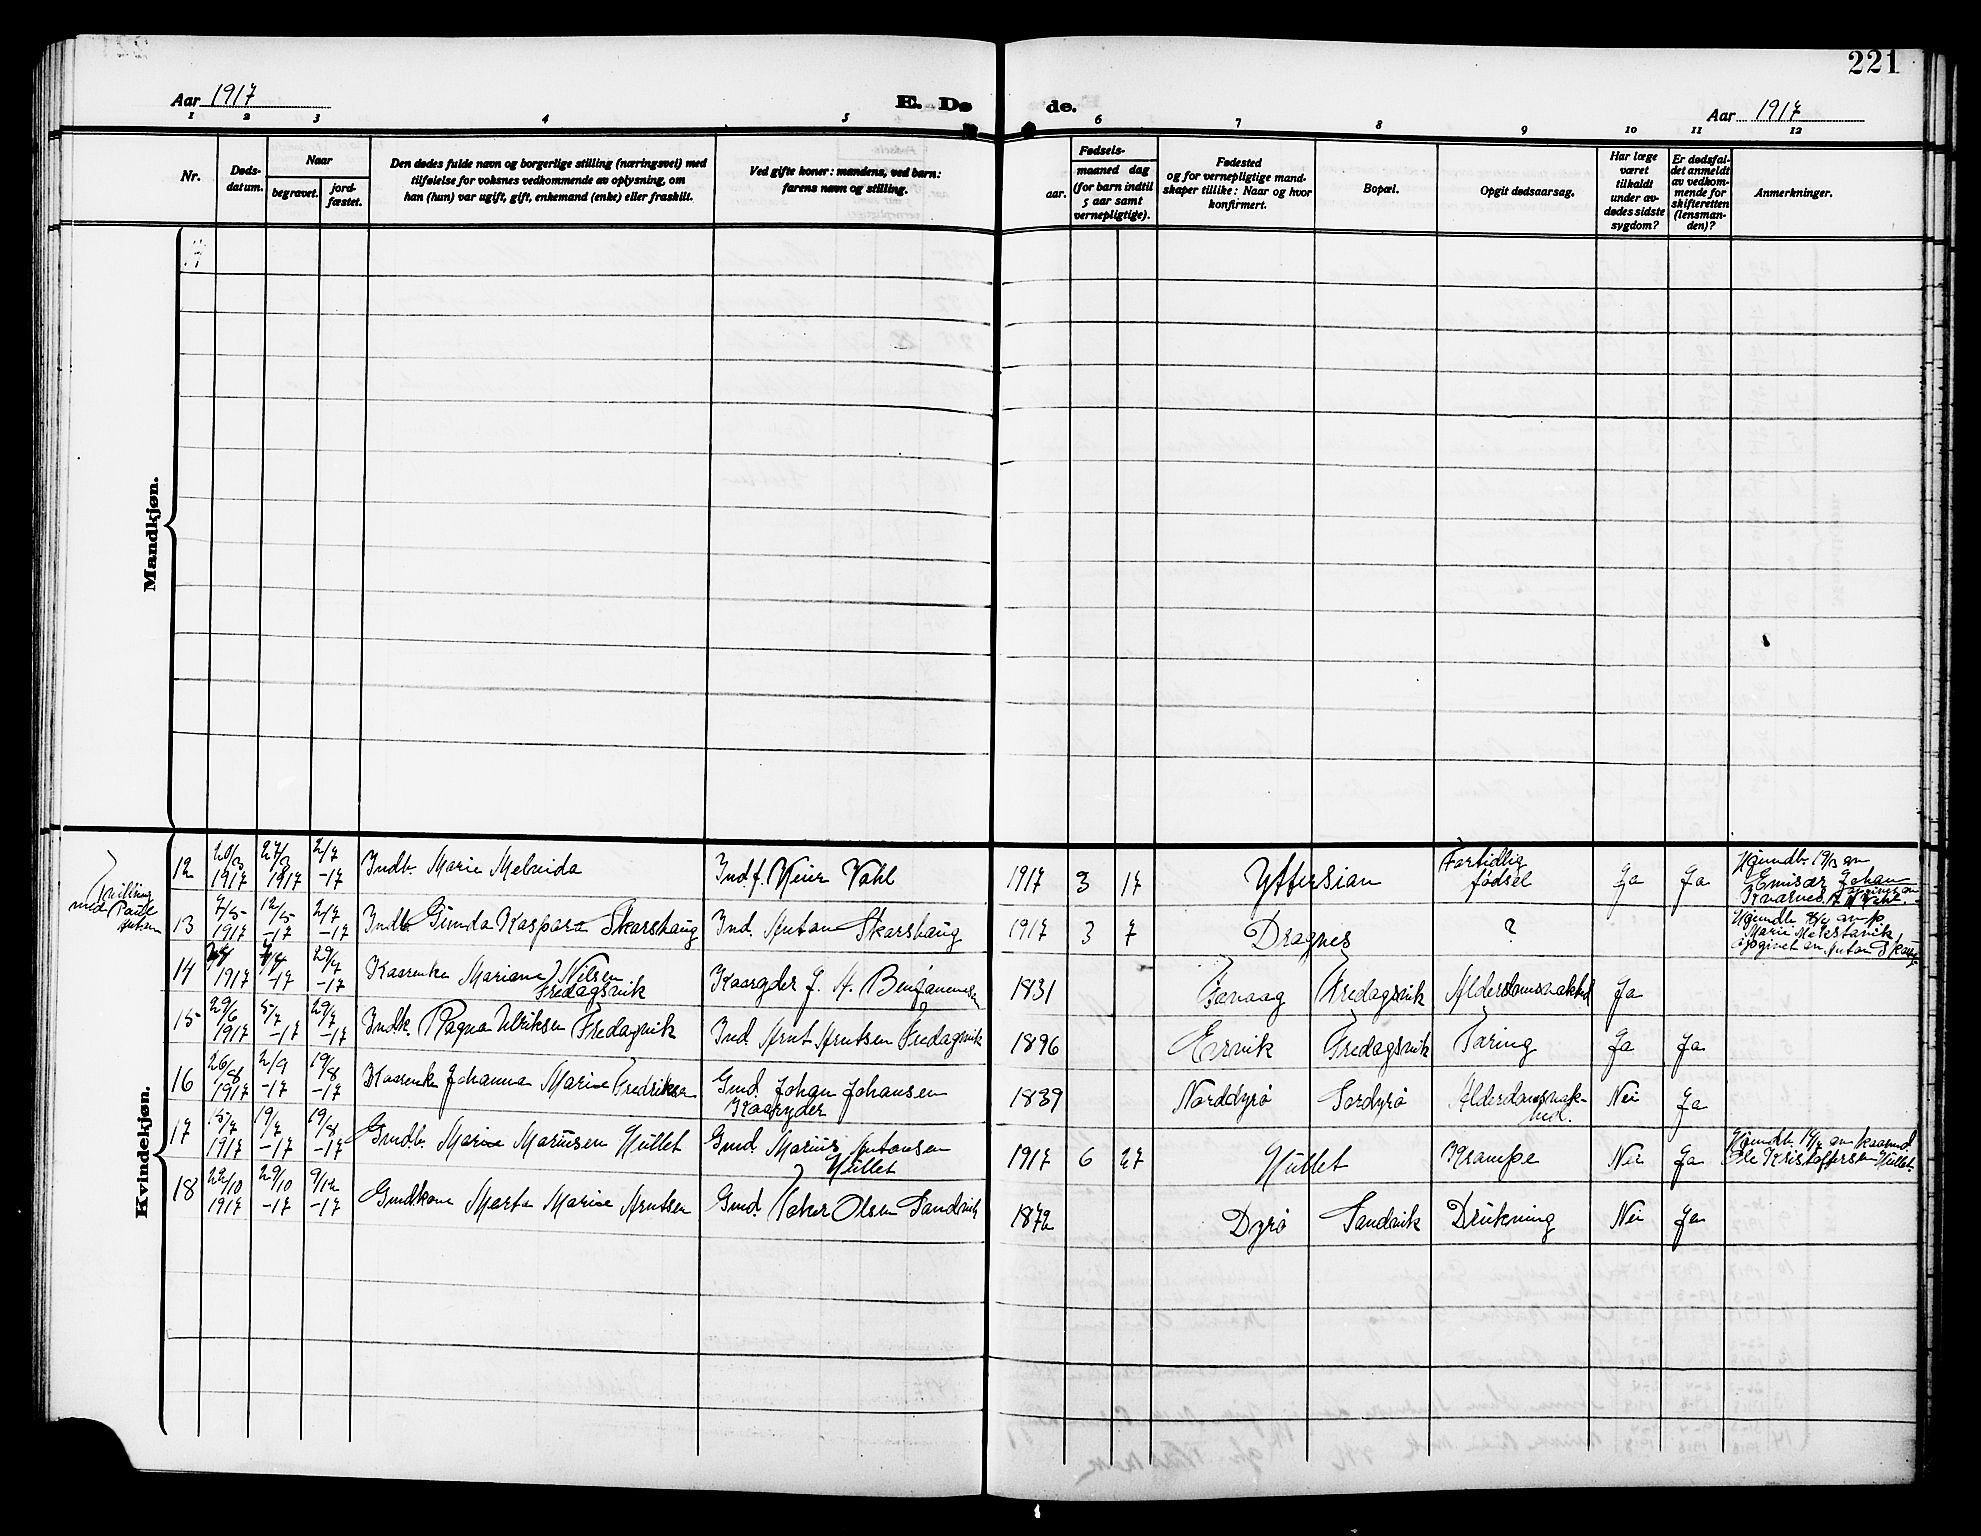 221
Aar 1917
E. Dø
de.
Aar 1917
1 2 3 4 5 6 7 8 9 10 11 12
Nr.
Døds-
datum.
Naar
begravet.
jord-
fæstet.
Den dødes fulde navn og borgerlige stilling (næringsvei) med
tilføielse for voksnes vedkommende av oplysning, om
han (hun) var ugift, gift, enkemand (enke) eller fraskilt.
Ved gifte koner: mandens, ved barn:
farens navn og stilling.
Fødsels-
aar.
maaned dag
(for barn indtil
5 aar samt
vernepligtige).
Fødested
og for vernepligtige mand-
skaper tillike: Naar og hvor
konfirmert.
Bopæl.
Opgit dødsaarsag.
Har læge
været
tilkaldt
under av-
dødes sidste
sygdom?
Er dødsfal-
det anmeldt
av vedkom-
mende for
skifteretten
(lensman-
den)?
Anmerkninger.
Mandkjøn.
Kvindekjøn.
Tvilling
med Paul
12 20/3 1917 27/3 1917 2/7 -17 Indb. Marie Melvida Indf. Meier Vahl 1917 3 17 Yttersian Fortidlig
fødsel Ja Ja Hjemdb. 19/3 av
Emisær Johan
Kvarnes.
13 7/5 1917 12/5 -17 2/7 -17 Indb Gunda Kaspara Skarshaug Ind. Anton Skarshaug 1917 3 7 Dragnes ? Hjemdb. av
Marie
opgivet av Anton Skarsh.
14 1917 -17 29/7 -17 Kaarenke Mariane Nilsen
Fredagsvik Kaargder J. A. Benjaminsen 1831 Fredagsvik Alderdomssvakhed Ja
15 29/6 1917 5/7 -17 29/7 -17 Indk. Ragna Ulriksen Fredagsvik Ind Arnt Arntsen Fredagsvik 1896 Ervik Fredagsvik Tæring Ja Ja
16 26/8 1917 2/9 -17 19/8 -17 Kaarenk Johanna Marie Fredriksen Gmd. Johan Johansen
Kaargder 1839 Norddyrø Sørdyrø Alderdomssvak-
hed. Nei Ja
17 15/7 1917 19/7 -17 19/8 -17 Gmdb. Marie Mariusen Hullet Gmd. Marius Antonsen
Hullet 1917 6 27 Hullet Krampe Nei Ja Hjemdb. 14/7 av kaarmd
Ole Kristoffersen Hullet.
18 22/10 1917 29/10 -17 9/12 -17 Gmdkone Marta Marie Arntsen Gmd. Peter Olsen Sandvik 1872 Dyrø Sandvik Drukning Nei Ja